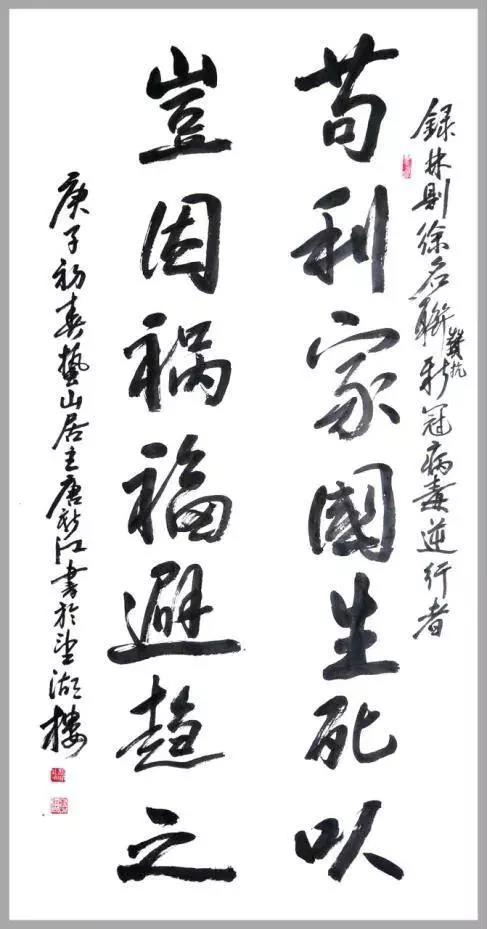 録林則徐名聯贊抗新冠病毒逆行者
苟利家國生死以
豈因祸福避趋之
庚子初春藝山居主唐新江書於望湖樓